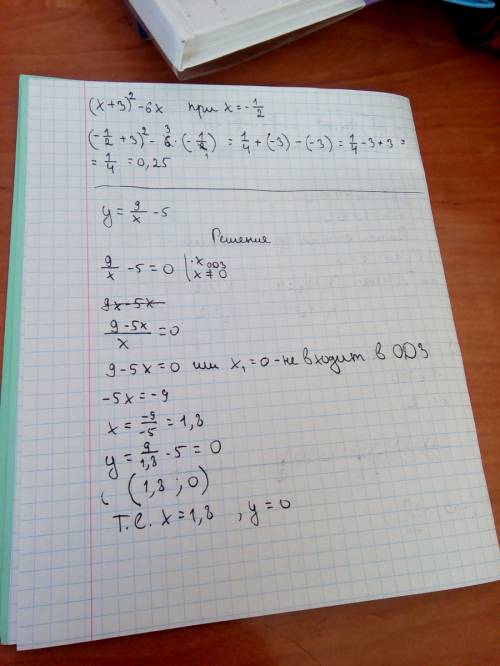 (x+3)² -6x при x = -1/2
(-1/2 + 3)² - 6̶ 3 · (-1/2̶ 1) = 1/4 + (-3) - (-3) = 1/4 - 3 + 3 =
= 1/4 = 0,25
y = 9/x - 5
Решение
9/x - 5 = 0 | ·x ОДЗ x ≠ 0
9x - 5x
(9 - 5x)/x = 0
9 - 5x = 0 или x₁ = 0 - не входит в ОДЗ
-5x = -9
x = -9/-5 = 1,8
y = 9/1,8 - 5 = 0
(1,8 ; 0)
Т.е. x = 1,8 , y = 0